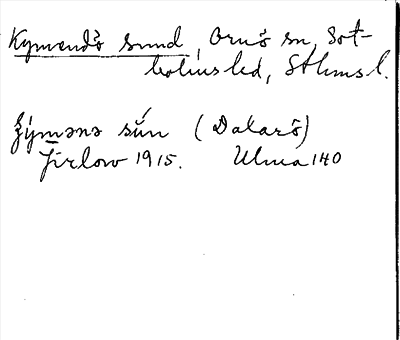 Kymmendö sund, Ornö sn, Sot-
holms hd, Sthms l.
ʒýmənə sún (Dalarö)
Jirlow 1915. Ulma 140